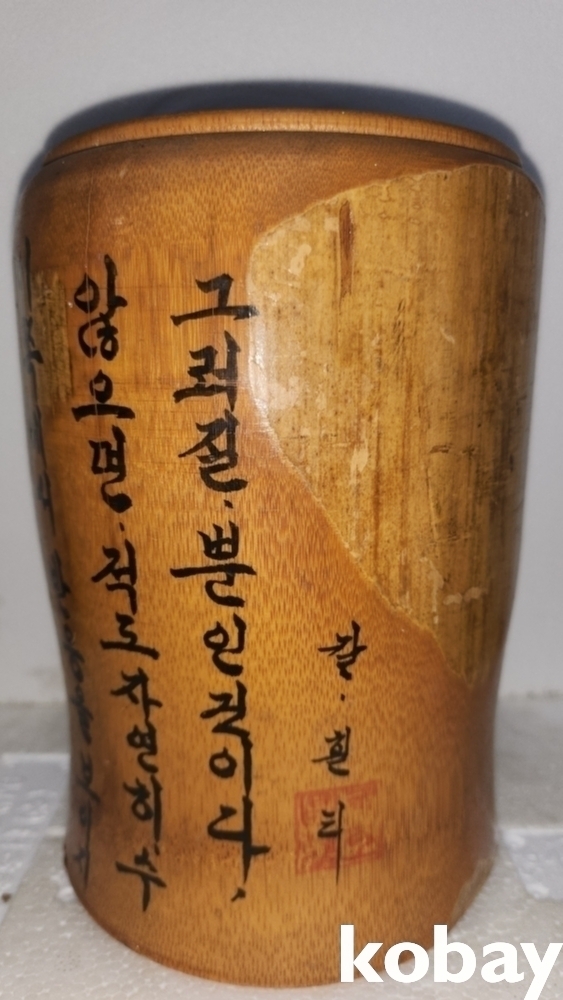 않으면.적도자연히.수
그러질.뿐인것이다.
칼.힐티
kobay